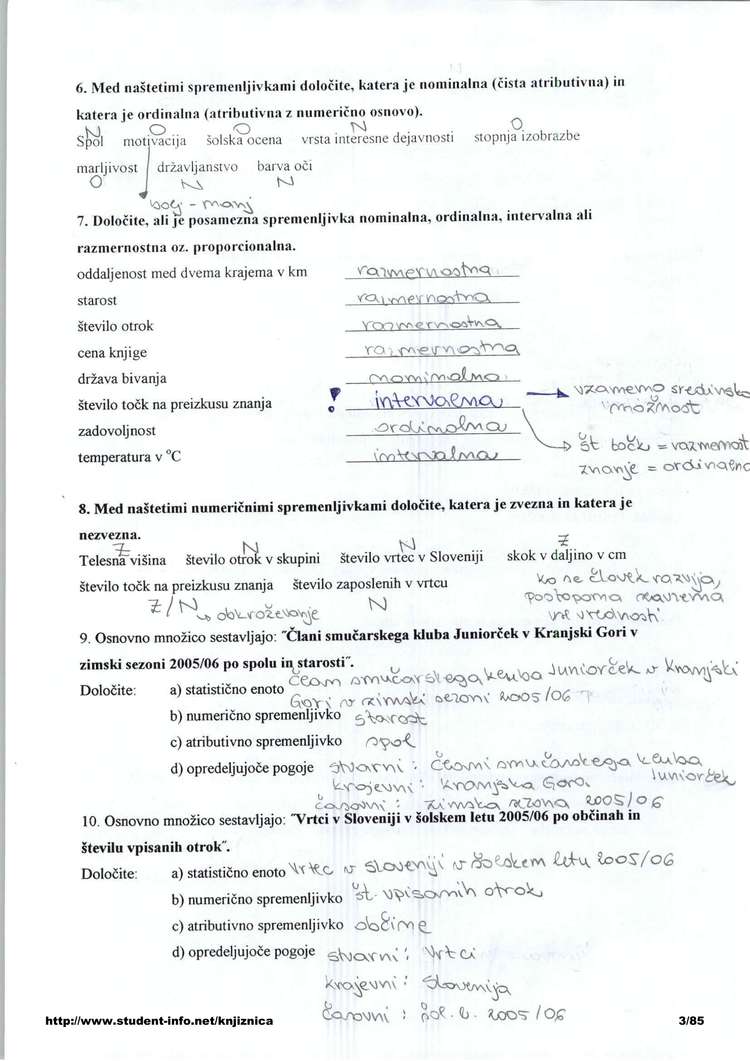 6. Med naštetimi spremenljivkami določite, katera je nominalna (čista atributivna) in
katera je ordinalna (atributivna z numerično osnovo).
N O O N O
Spol motivacija šolska ocena vrsta interesne dejavnosti stopnja izobrazbe
marljivost državljanstvo barva oči
O N N
bolj - manj
7. Določite, ali je posamezna spremenljivka nominalna, ordinalna, intervalna ali
razmernostna oz. proporcionalna.
oddaljenost med dvema krajema v km razmernostna
starost razmernostna
število otrok razmernostna
cena knjige razmernostna
država bivanja nominalna
število točk na preizkusu znanja ! intervalna vzamemo sredinsko
možnost
zadovoljnost ordinalna
št točk = razmernost
temperatura v °C intervalna
znanje = ordinalno
8. Med naštetimi numeričnimi spremenljivkami določite, katera je zvezna in katera je
nezvezna.
Z N N Z
Telesna višina število otrok v skupini število vrtec v Sloveniji skok v daljino v cm
število točk na preizkusu znanja število zaposlenih v vrtcu
ko se človek razvija,
postopoma zavzema
vse vrednosti
Z/N obkroževanje N
9. Osnovno množico sestavljajo: "Člani smučarskega kluba Juniorček v Kranjski Gori v
zimski sezoni 2005/06 po spolu in starosti".
Določite: a) statistično enoto član smučarskega kluba Juniorček v Kranjski
Gori v zimski sezoni 2005/06
b) numerično spremenljivko starost
c) atributivno spremenljivko spol
d) opredeljujoče pogoje stvarni : člani smučarskega kluba
Juniorček
krajevni : Kranjska Gora
časovni : zimska sezona 2005/06
10. Osnovno množico sestavljajo: "Vrtci v Sloveniji v šolskem letu 2005/06 po občinah in
številu vpisanih otrok".
Določite: a) statistično enoto Vrtec v Sloveniji v šolskem letu 2005/06
b) numerično spremenljivko št. vpisanih otrok
c) atributivno spremenljivko občine
d) opredeljujoče pogoje stvarni : Vrtci
krajevni : Slovenija
časovni : šol. l. 2005/06
http://www.student-info.net/knjiznica 3/85